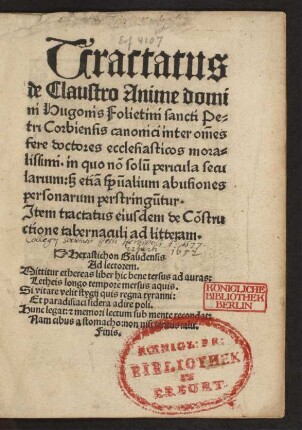 Tractatus
de Claustro Anime domi
ni Hugonis Folietini sancti Pe-
tri Corbiensis canonici inter om̄es
fere doctores ecclesiasticos mora-
lissimi. in quo nō solū pericula secu
larium: sʒ etiā spūalium abusiones
personarum perstringūtur.
Item tractatus eiusdem de Cōstru
ctione tabernaculi ad litteram.
Hexastichon Gaudensis
Ad lectorem.
Mittitur ethereas liber hic bene tersus ad auras:
Letheis longo tempore mersus aquis.
Si vitare velit stygij quis regna tyranni:
Et paradisiaci sidera adire poli.
Hunc legat: ⁊ memori lectum sub mente recondat:
Nam cibus a stomacho: non
Finis.
KÖNIGLICHE
BIBLIOTHEK
BERLIN
KOENIGL: PR:
BIBLIOTHEK
ZU
ERFURT.